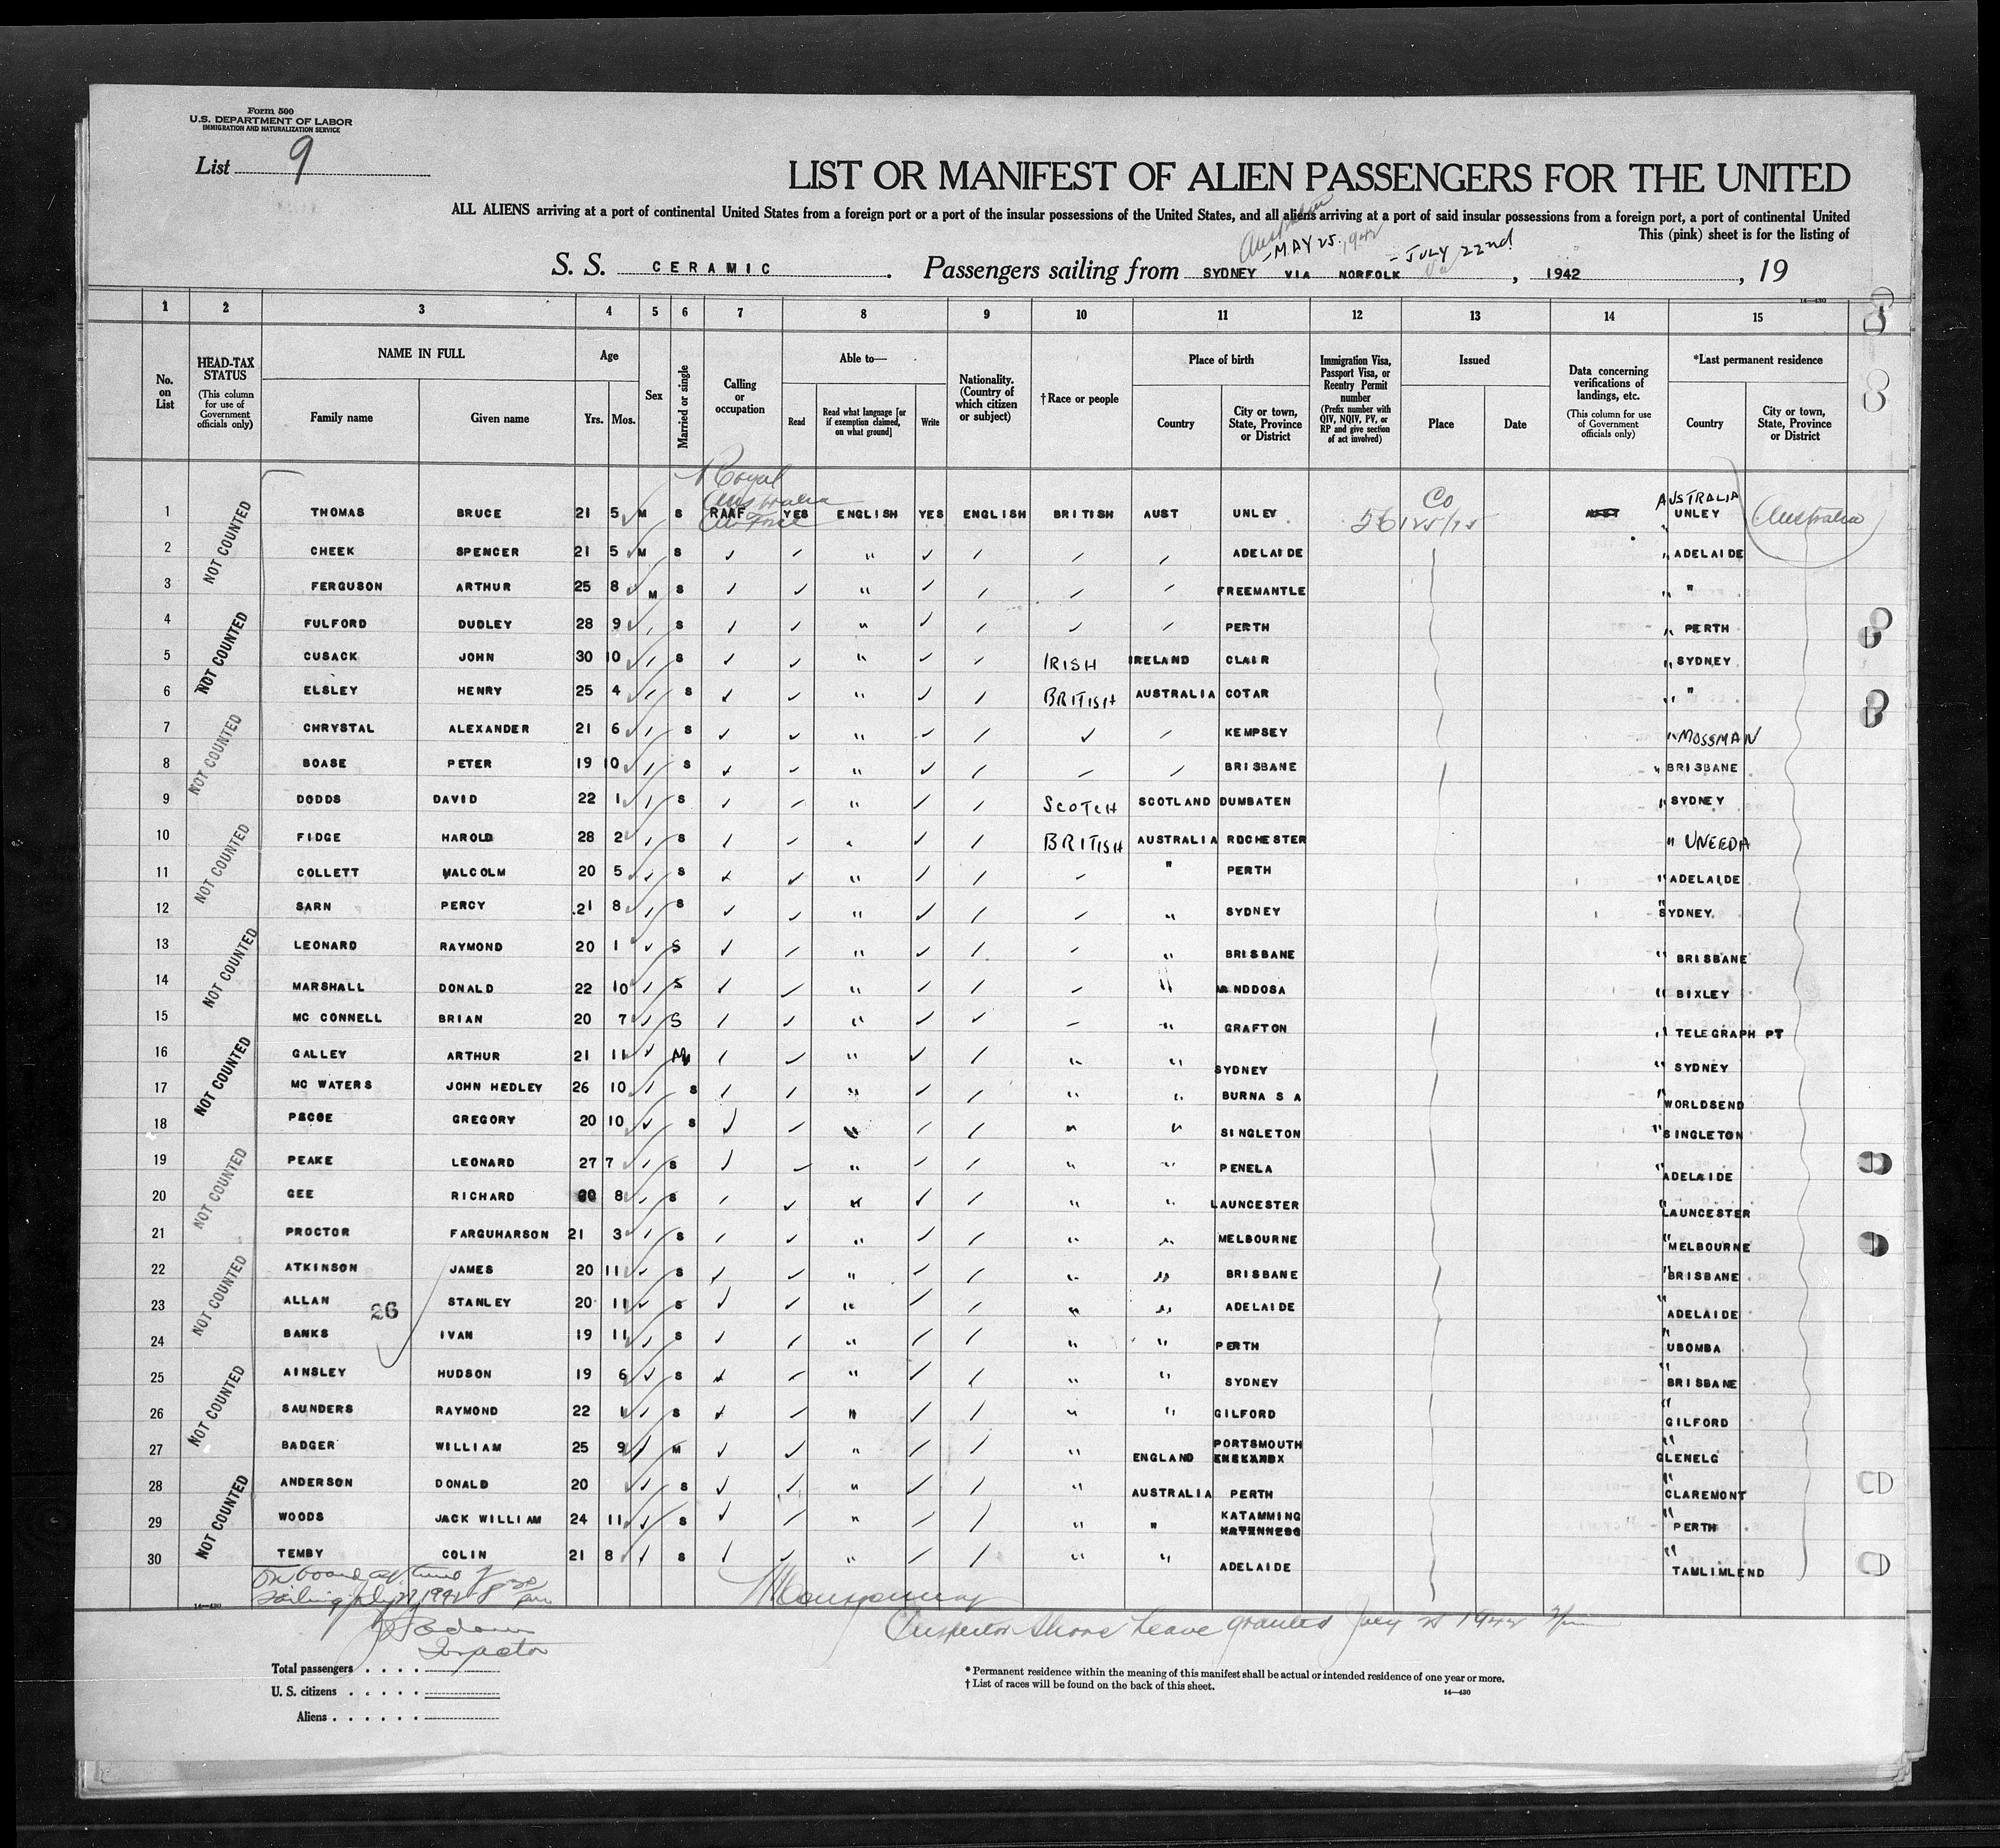 Form 500
U.S. DEPARTMENT OF LABOR
IMMIGRATION AND NATURALIZATION SERVICE
List 9
LIST OR MANIFEST OF ALIEN PASSENGERS FOR THE UNITED
ALL ALIENS arriving at a port of continental United States from a foreign port or a port of the insular possessions of the United States, and all aliens arriving at a port of said insular possessions from a foreign port, a port of continental United
This (pink) sheet is for the listing of
Australia
MAY 25, 1942 - JULY 22nd
S. S. CERAMIC. Passengers sailing from SYDNEY VIA NORFOLK Va, 1942, 19
14—430
1 2 3 4 5 6 7 8 9 10 11 12 13 14 15
No. on List
HEAD-TAX STATUS
(This column for use of Government officials only)
NAME IN FULL
Family name Given name
Age
Yrs. Mos.
Sex
Married or single
Calling or occupation
Able to—
Read
Read what language [or if exemption claimed, on what ground]
Write
Nationality. (Country of which citizen or subject)
†Race or people
Place of birth
Country
City or town, State, Province or District
Immigration Visa, Passport Visa, or Reentry Permit number
(Prefix number with QIV, NQIV, PV, or RP and give section of act involved)
Issued
Place Date
Data concerning verifications of landings, etc.
(This column for use of Government officials only)
*Last permanent residence
Country
City or town, State, Province or District
Royal
Australia
Air Force
Co
56125/75
Australia
1 THOMAS BRUCE 21 5 M S RAAF YES ENGLISH YES ENGLISH BRITISH AUST UNLEY AUSTRALIA UNLEY
2 CHEEK SPENCER 21 5 M S " ADELAIDE " ADELAIDE
3 FERGUSON ARTHUR 25 8 M S " FREEMANTLE " "
4 FULFORD DUDLEY 28 9 S " PERTH " PERTH
5 CUSACK JOHN 30 10 S " IRISH IRELAND CLAIR " SYDNEY
6 ELSLEY HENRY 25 4 S " BRITISH AUSTRALIA COTAR " "
7 CHRYSTAL ALEXANDER 21 6 S " KEMPSEY " MOSSMAN
8 BOASE PETER 19 10 S " BRISBANE " BRISBANE
9 DODDS DAVID 22 1 S " SCOTCH SCOTLAND DUMBATEN " SYDNEY
10 FIDGE HAROLD 28 2 S " BRITISH AUSTRALIA ROCHESTER " UNEEDA
11 COLLETT MALCOLM 20 5 S " " PERTH " ADELAIDE
12 SARN PERCY 21 8 S " " SYDNEY " SYDNEY
13 LEONARD RAYMOND 20 1 S " " BRISBANE " BRISBANE
14 MARSHALL DONALD 22 10 S " " NDDOSA " BIXLEY
15 MC CONNELL BRIAN 20 7 S " " GRAFTON " TELEGRAPH PT
16 GALLEY ARTHUR 21 11 M " " " SYDNEY " SYDNEY
17 MC WATERS JOHN HEDLEY 26 10 S " " " BURNA S A " WORLDSEND
18 PSCOE GREGORY 20 10 S " " " SINGLETON " SINGLETON
19 PEAKE LEONARD 27 7 S " " " PENELA " ADELAIDE
20 GEE RICHARD 20 8 S " " " LAUNCESTER " LAUNCESTER
21 PROCTOR FARGUHARSON 21 3 S " " " MELBOURNE " MELBOURNE
22 ATKINSON JAMES 20 11 S " " " BRISBANE " BRISBANE
23 ALLAN STANLEY 20 11 S " " " ADELAIDE " ADELAIDE
26
24 BANKS IVAN 19 11 S " " " PERTH " UBOMBA
25 AINSLEY HUDSON 19 6 S " " " SYDNEY " BRISBANE
26 SAUNDERS RAYMOND 22 1 S " " " GILFORD " GILFORD
27 BADGER WILLIAM 25 9 M " " ENGLAND PORTSMOUTH " GLENELG
28 ANDERSON DONALD 20 S " " AUSTRALIA PERTH " CLAREMONT
29 WOODS JACK WILLIAM 24 11 S " " " KATAMMING " PERTH
30 TEMBY COLIN 21 8 S " " " ADELAIDE " TAMLIMLEND
NOT COUNTED
NOT COUNTED
NOT COUNTED
NOT COUNTED
NOT COUNTED
NOT COUNTED
NOT COUNTED
NOT COUNTED
NOT COUNTED
NOT COUNTED
On board at time of
sailing July 22, 1942 8 pm
Inspector
14—430
Montgomery
Inspector Shore Leave granted July 21 1942
Total passengers
U. S. citizens
Aliens
* Permanent residence within the meaning of this manifest shall be actual or intended residence of one year or more.
† List of races will be found on the back of this sheet.
14—430